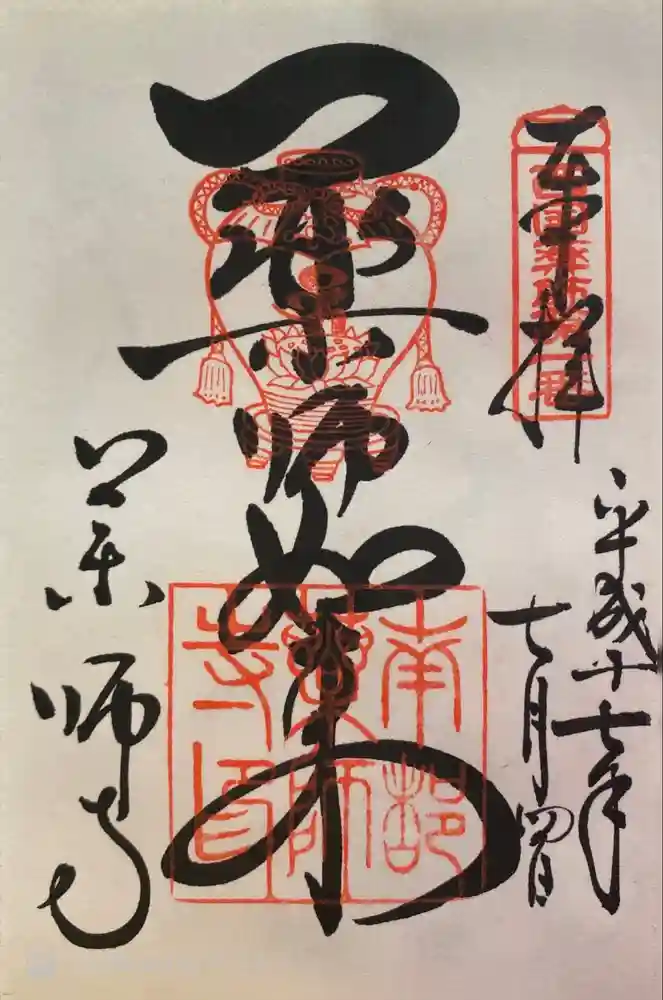 奉拝
西國薬師第一番
平成十七年
七月四日
薬師如来
南都
薬師
寺印
薬師寺